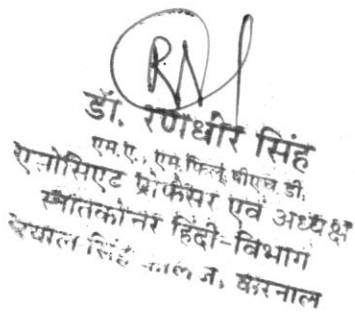 डॉ. रणधीर सिंह
एम.ए., एम.फिल्. पीएच डी.
एसोसिएट प्रोफैसर एवं अध्यक्ष
स्नातकोत्तर हिंदी-विभाग
दयाल सिंह कालेज, करनाल